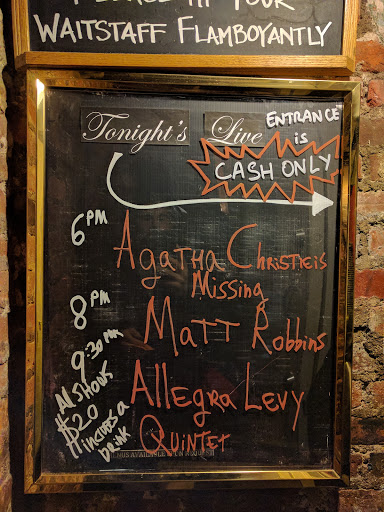 YOUR
WAITSTAFF FLAMBOYANTLY
Tonight's Live
ENTRANCE
is
CASH ONLY
6 PM
Agatha Christieis
Missing
8 PM
Matt Robbins
9:30 PM
Allegra Levy
Quintet
All SHOWS
$20
INCLUDES A
DRINK